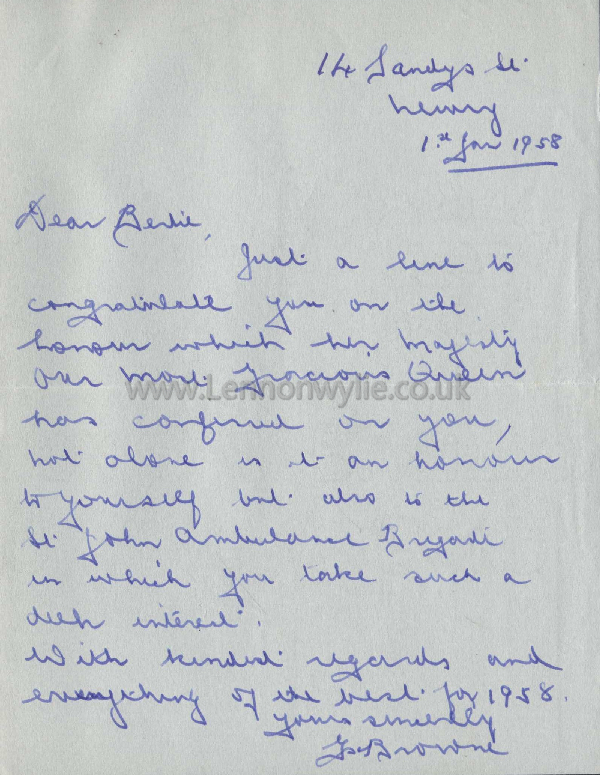 14 Sandys St.
Newry
1st Jan 1958
Dear Bertie,
Just a line to
congratulate you on the
honour which her Majesty
our most Gracious Queen
www.Lennonwylie.co.uk
has conferred on you,
not alone is it an honour
to yourself but also to the
St John Ambulance Brigade
in which you take such a
deep interest.
With kindest regards and
everything of the best for 1958.
Yours sincerely
Browne